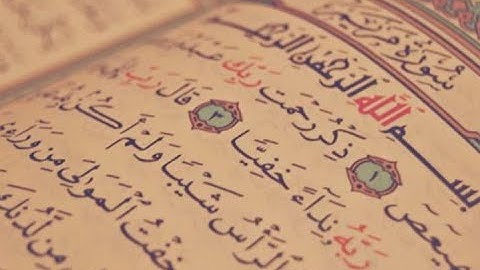 سُورَةُ مَرْيَمَ
بِسْمِ اللَّهِ الرَّحْمَٰنِ الرَّحِيمِ
يعص ١ ذِكْرُ رَحْمَتِ رَبِّكَ عَبْدَهُ
رَبَّهُ نِدَآءً خَفِيًّا ٣ قَالَ رَبِّ
الرَّأْسُ شَيْبًا وَلَمْ أَكُنْ
خِفْتُ الْمَوَٰلِيَ مِنْ وَرَآءِ
مِنْ لَدُنْكَ